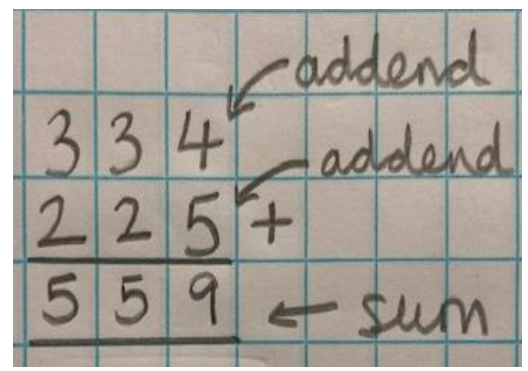 addend
3 3 4
addend
2 2 5 +
5 5 9 ← sum